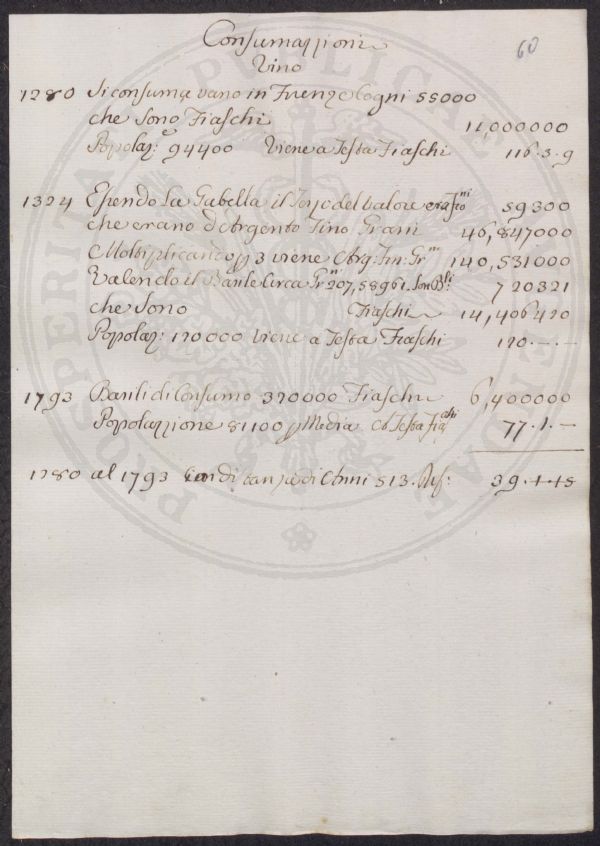 Consumazzioni
60
Vino
1280 Si consumavano in Firenze Cogni 55000
che Sono Fiaschi 11,000000
Popolaz: 94400 Viene a Testa Fiaschi 116.3.9
1324 Essendo La Gabella il del valore 59300
che erano d'Argento Fino Grani 46,847000
Moltiplicando p 3 viene Arg: Fin: Grni 140,531000
Valendo il Barile circa Grni 207,58961. Son Bli 720321
che Sono Fiaschi 14,406420
Popolaz: 120000 Viene a Testa Fiaschi 120.-.-
1793 Barili di Consumo 320000 Fiaschi 6,400000
Popolazzione 81100 p Media a Testa Fiaschi 77.1.-
1280 al 1793 in distanza di Anni 513. 39.1.15
PROSPERITATI PUBLICAE AUGENDAE